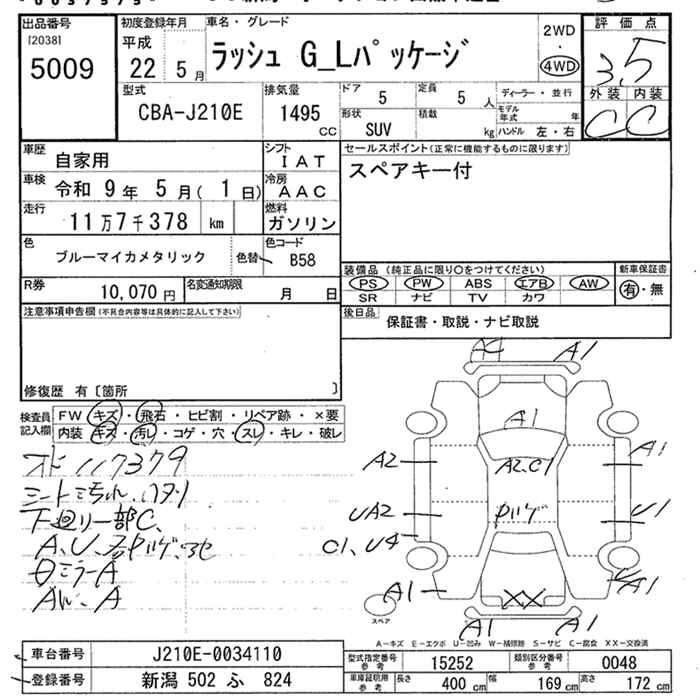 出品番号 初度登録年月 車名・グレード 評価点
[2038]
5009 平成 22 5月 ラッシュ G_Lパッケージ 2WD ・ 4WD 3.5
型式 排気量 ドア 5 定員 5人 ディーラー・並行 外装 内装
CBA-J210E 1495 CC 形状 SUV 積載 kg モデル年式 年 ハンドル 左・右 C C
車歴 自家用 シフト IAT セールスポイント(正常に機能するものに限ります)
車検 令和 9年 5月( 1日) 冷房 AAC スペアキー付
走行 11万7千378 km 燃料 ガソリン
色 ブルーマイカメタリック 色替 色コード B58
装備品(純正品に限り○をつけてください) 新車保証書
R券 10,070円 名変通知期限 月 日 PS PW ABS エアB AW 有・無
SR ナビ TV カワ
注意事項申告欄(不具合内容等は具体的に記入して下さい) 後日品 保証書・取説・ナビ取説
修復歴 有〔箇所 〕
検査員記入欄 FW キズ・飛石・ヒビ割・リペア跡・×要
内装 キズ・汚レ・コゲ・穴・スレ・キレ・破レ
117379
下廻り一部C、
A、U、
ミラーA
A
A4 A1
A1
A2 A2.C1 A1
UA2 U1
C1、U4
A1 XX A1
A1 A1
スペア
A-キズ E-エクボ U-凹み W-補修跡 S-サビ C-腐食 XX-交換済
車台番号 J210E-0034110 型式指定番号 参考 15252 類別区分番号 参考 0048
登録番号 新潟 502 ふ 824 車庫証明用 参考 長さ 400 cm 幅 169 cm 高さ 172 cm